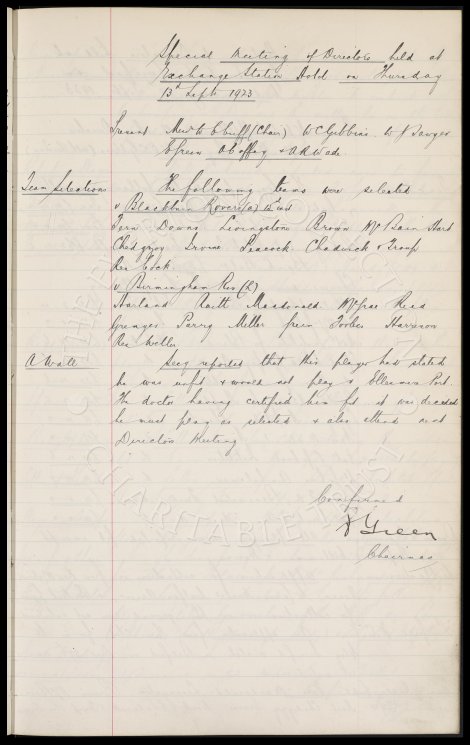 Special Meeting of Directors held at
Exchange Station Hotel on Thursday
13th Sept 1923
Present Messrs W C Cuff (Chair) W C Gibbins W J Sawyer
E Green A Coffey & A R Wade
Team Selections The following teams were selected
v Blackburn Rovers (a) 15th inst
Fern Downs Livingstone Brown McBain Hart
Chedgzoy Irvine Peacock Chadwick & Troup
Res Cock.
v Birmingham Res (h)
Harland Raitt Macdonald McGras Reid
Grenyer Parry Miller Forbes Harrison
Res Weller
A Wall Secy reported that this player had stated
he was unfit & would not play v Ellesmere Port.
The doctor having certified him fit it was decided
he must play as selected & also attend next
Directors Meeting
Confirmed
Green
Chairman
THE
CHARITABLE TRUST